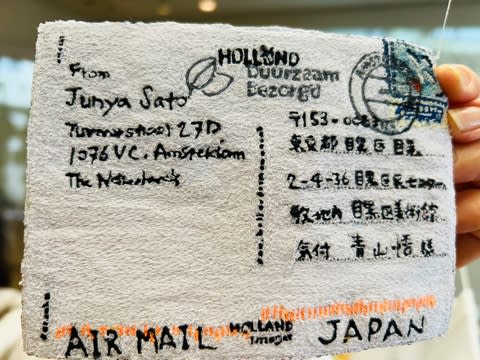 HOLLAND
Duurzaam
Bezorgd
From
Junya Sato
27D
1076 VC. Amsterdam
The Netherlands
〒153-
東京都 目黒区 目黒
2-4-36 目黒区民
敷地内 目黒区美術館
気付 青山悟 様
AIR MAIL
HOLLAND
Images
JAPAN